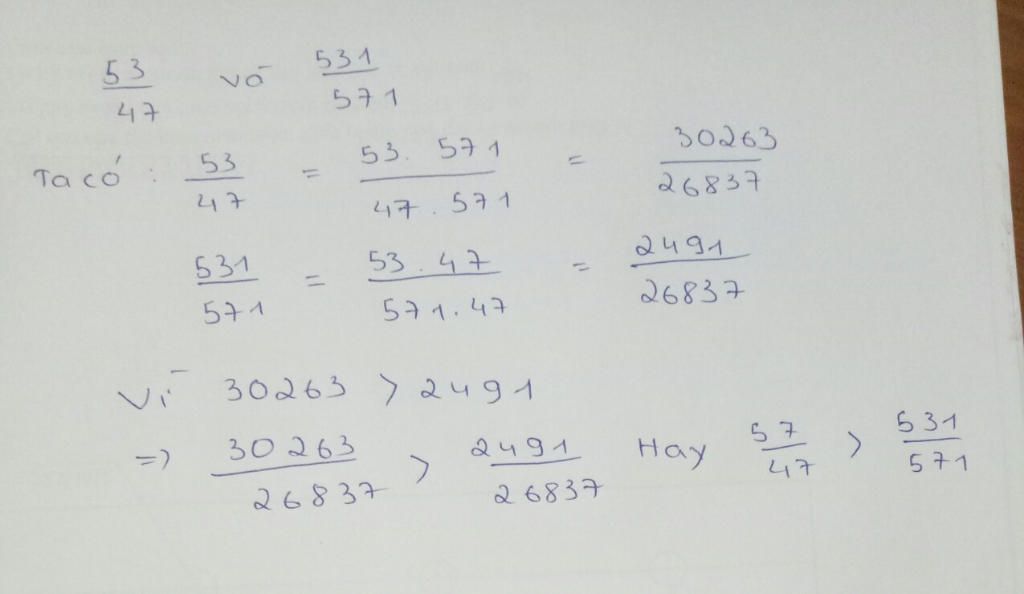 53/47 và 531/571
Ta có : 53/47 = 53. 571/47 . 571 = 30263/26837
531/571 = 53 . 47/571 . 47 = 2491/26837
Vì 30263 > 2491
=> 30263/26837 > 2491/26837 Hay 57/47 > 531/571